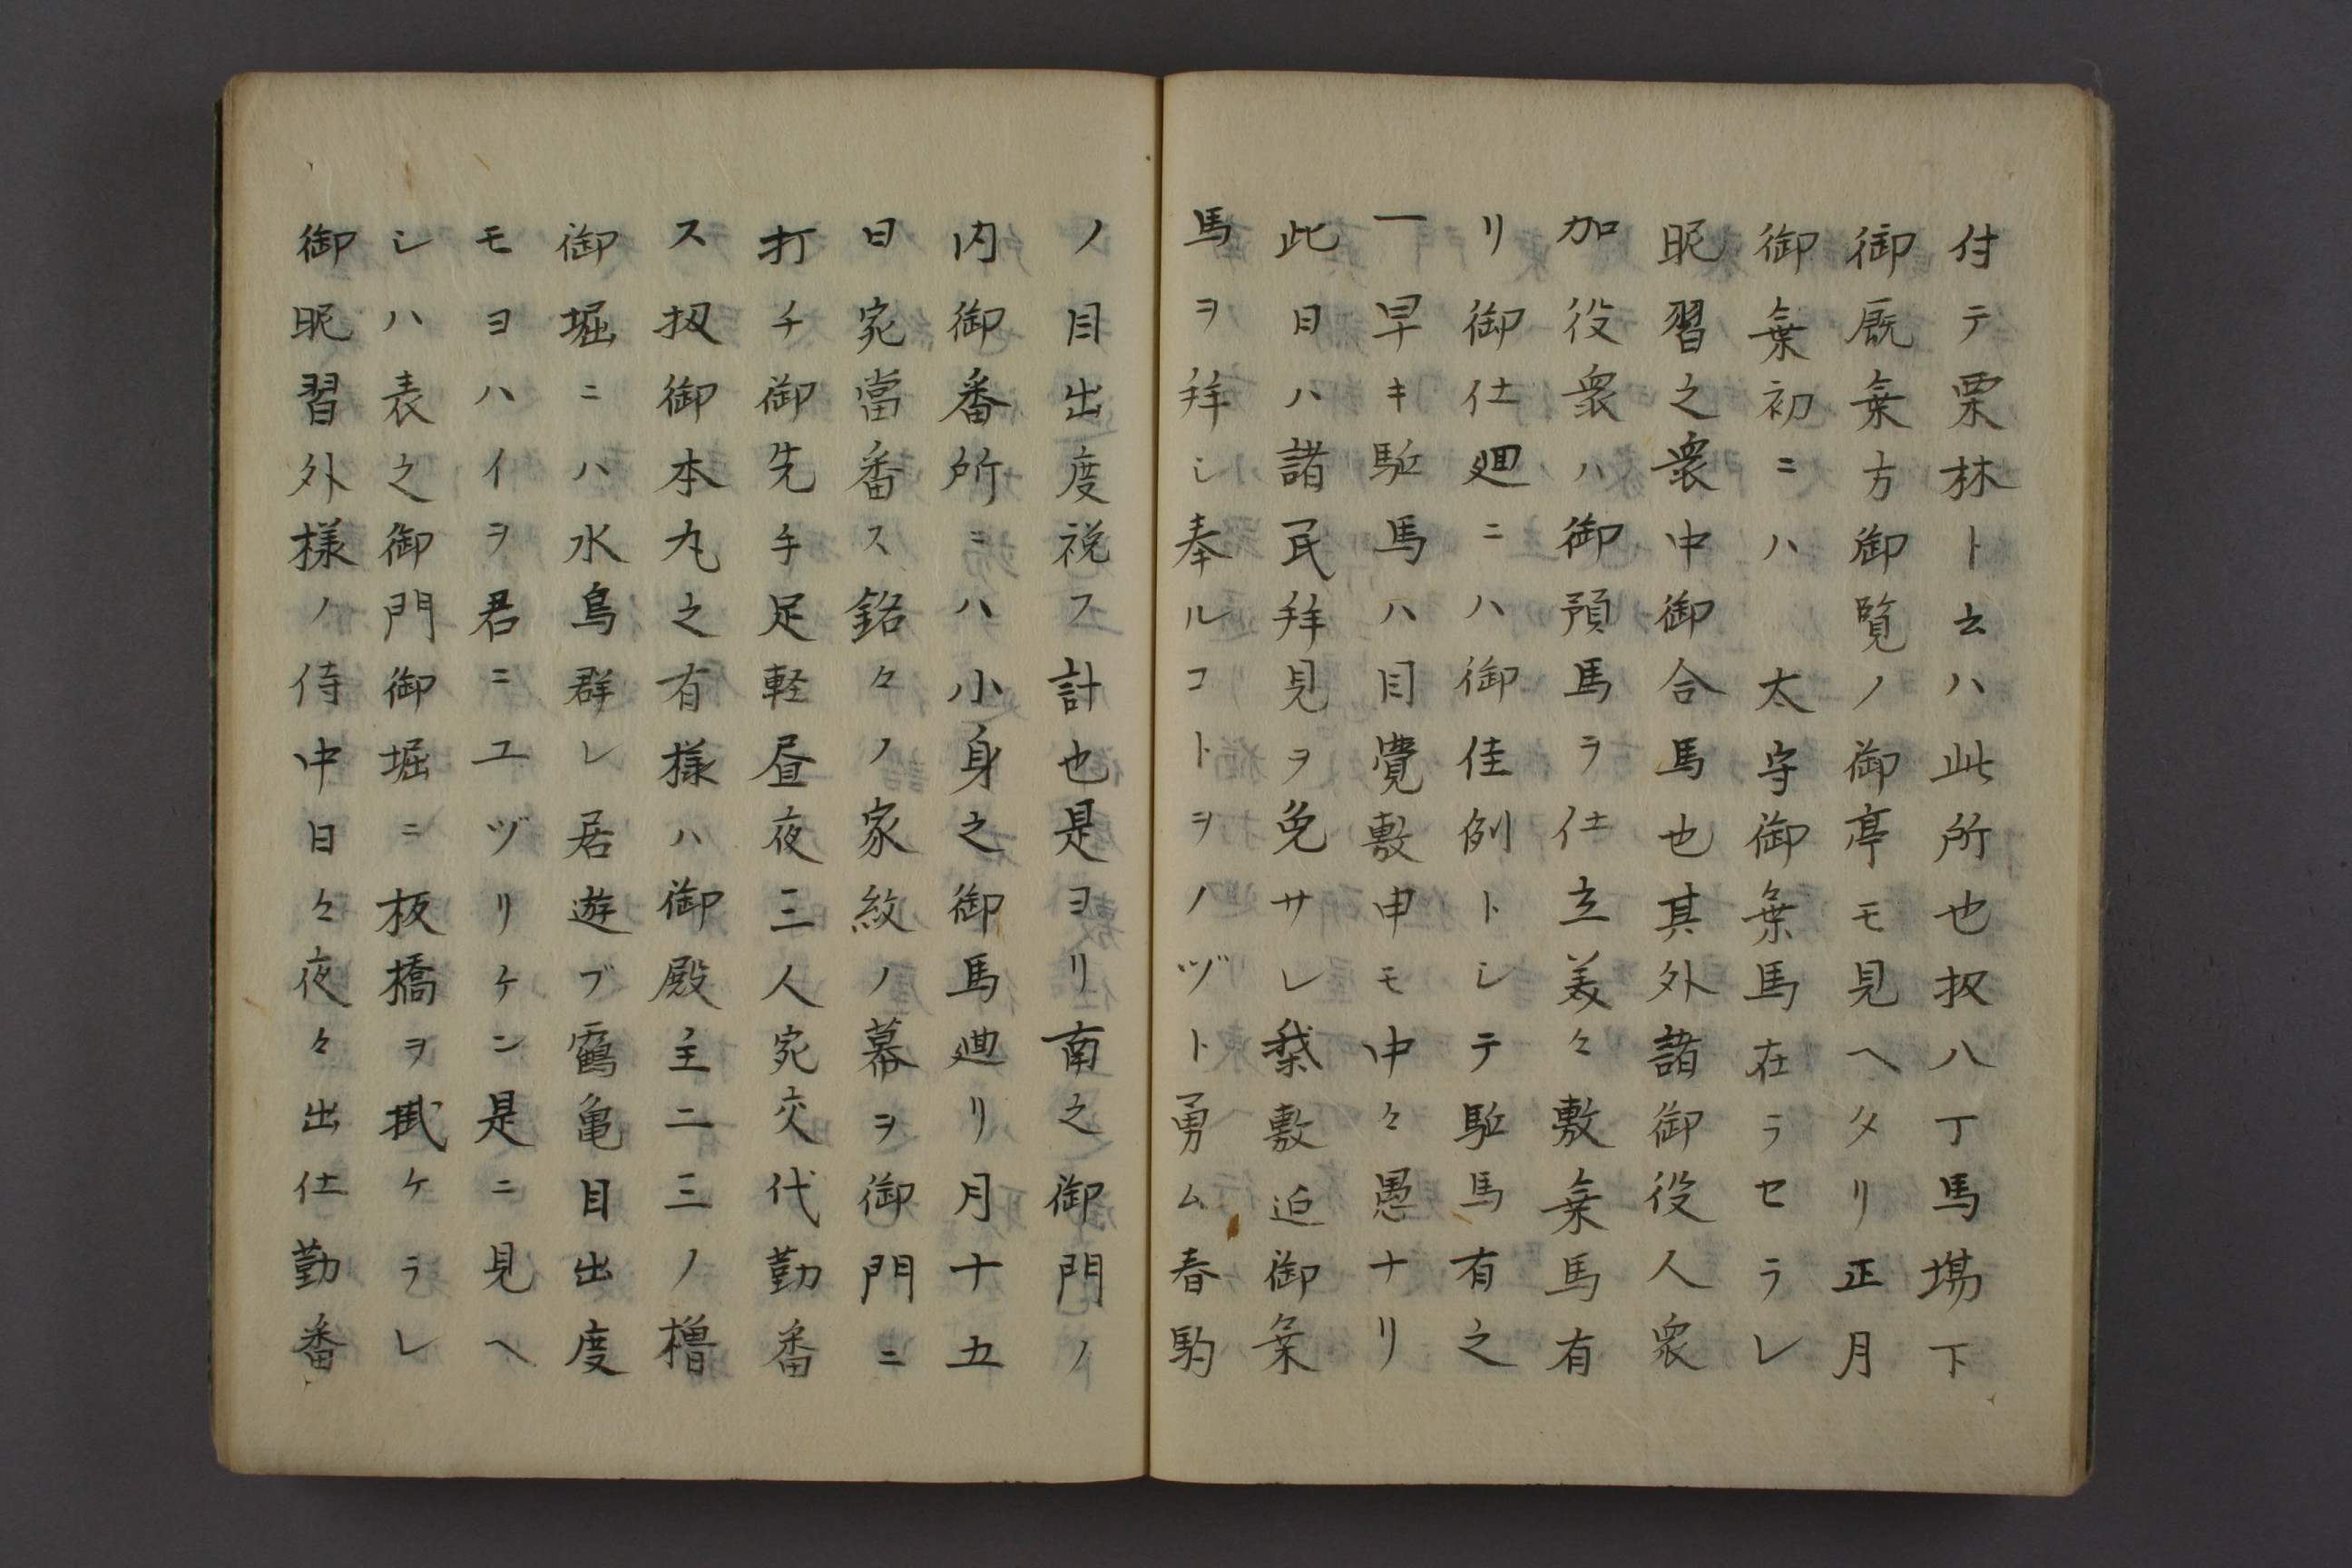 付テ栗林ト云ハ此所也扨八丁馬場下
御厩乗方御覧ノ御亭モ見ヘタリ正月
御乗初ニハ　太守御乗馬在ラセラレ
昵習之衆中御合馬也其外諸御役人衆
加役衆ハ御預馬ヲ仕立美々敷乗馬有
リ御仕廻ニハ御佳例トシテ駈馬有之
一早キ駈馬ハ目覺敷申モ中々愚ナリ
此日ハ諸民拜見ヲ免サレ桼敷迄御乗
馬ヲ拜シ奉ルコトヲノヅト勇ム春駒
ノ目出度祝ス計也是ヨリ南之御門ノ
内御番所ニハ小身之御馬廻リ月十五
日宛當番ス銘々ノ家紋ノ幕ヲ御門ニ
打チ御先手足軽昼夜三人宛交代勤番
ス扨御本丸之有樣ハ御殿主二三ノ櫓
御堀ニハ水鳥群レ居遊ブ靏亀目出度
モヨハイヲ君ニユヅリケン是ニ見ヘ
シハ表之御門御堀ニ板橋ヲ掛ケラレ
御昵習外樣ノ侍中日々夜々出仕勤番